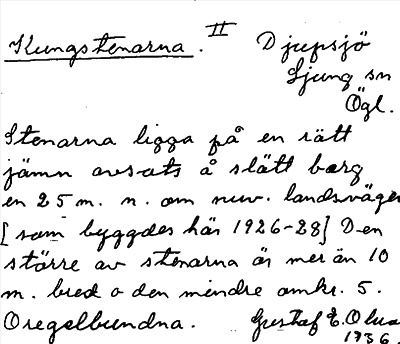 Kungstenarna. II Djupsjö
Ljung sn
Ögl.
Stenarna ligga på en rätt
jämn avsats å slätt barg
en 25 m. n. om nuv. landsvägen
[som byggdes här 1926-28] Den
större av stenarna är mer än 10
m. bred o den mindre omkr. 5.
Oregelbundna. Gustaf E. Olsson
1936.